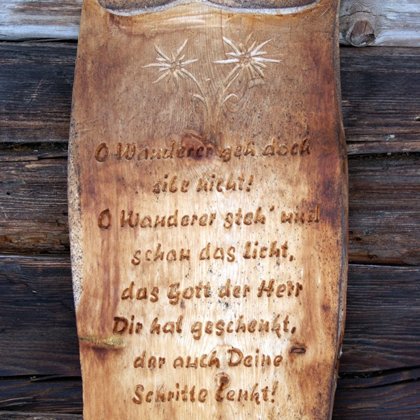 O Wanderer geh doch
eile nicht!
O Wanderer steh' und
schau das Licht,
das Gott der Herr
Dir hat geschenkt,
der auch Deine
Schritte lenkt!